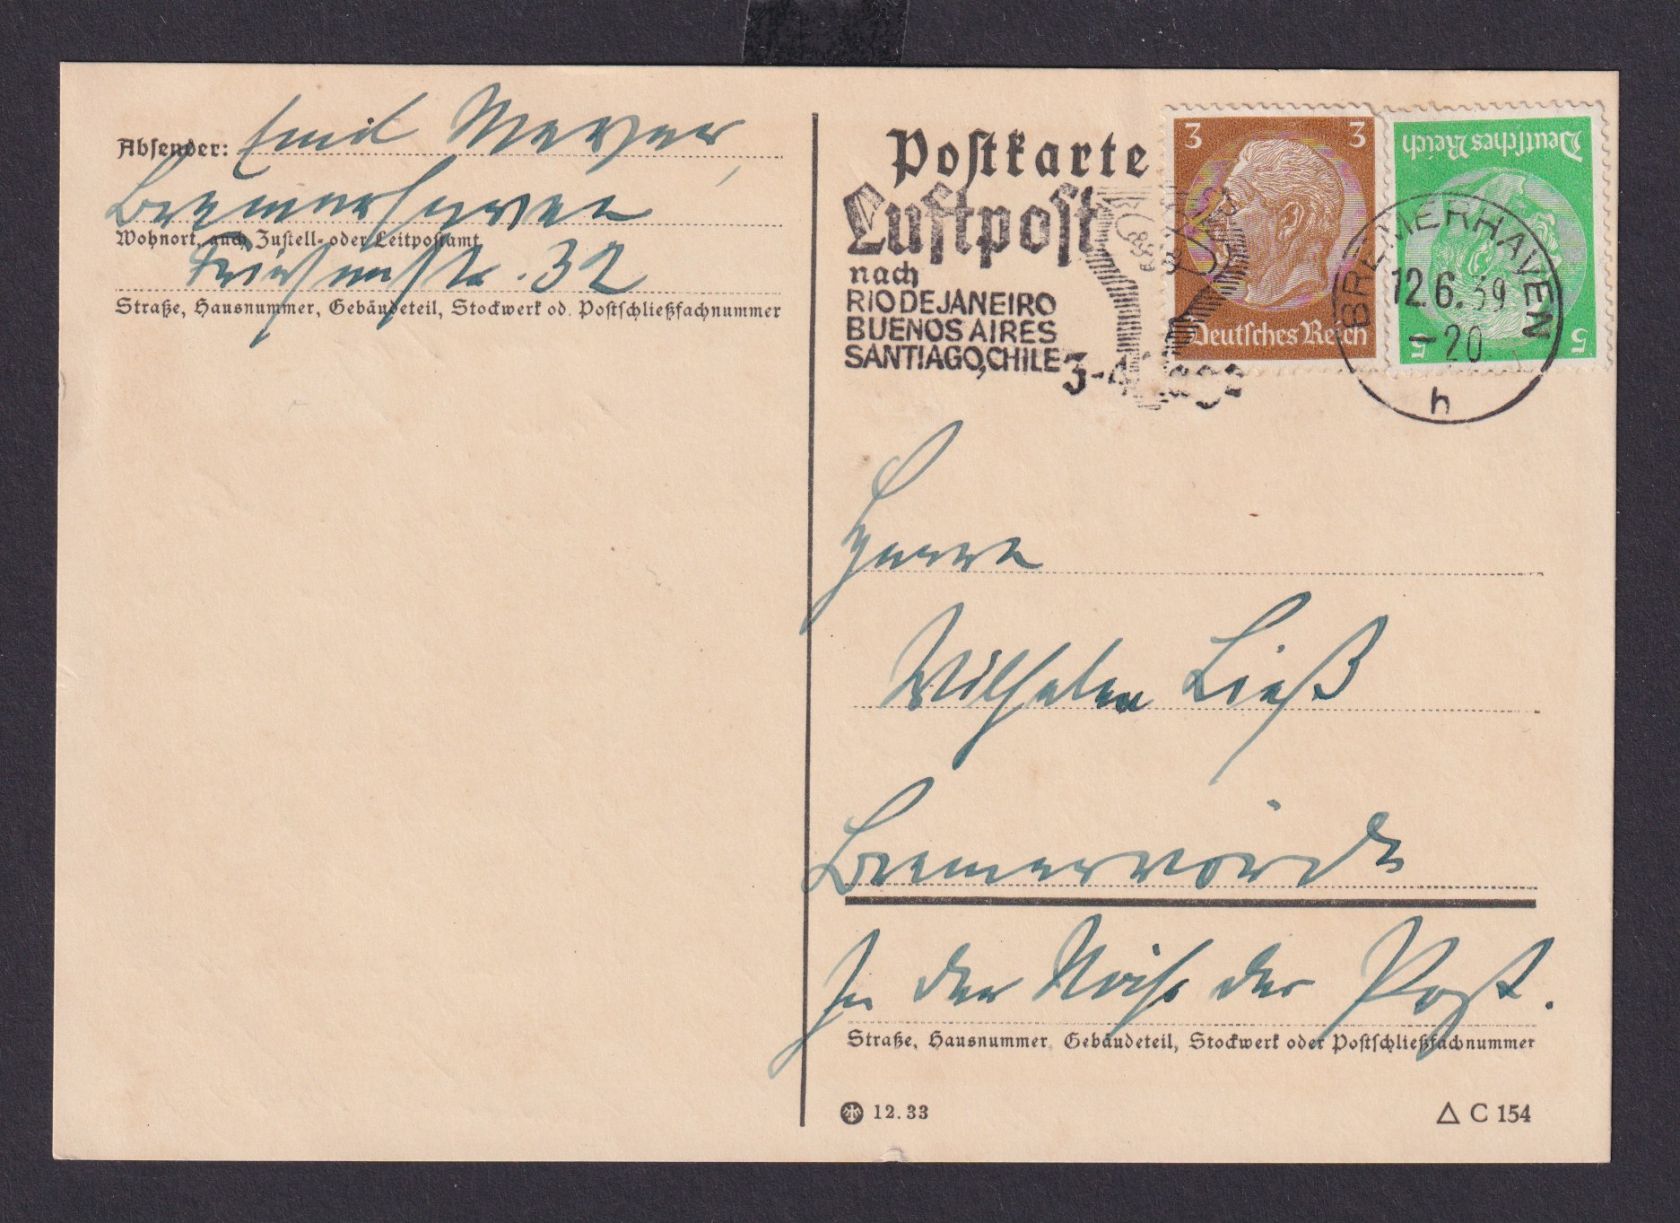 Absender: Emil Meyer,
Bremerhaven
Wohnort, auch Zustell- oder Leitpostamt
Friesenstr. 32
Straße, Hausnummer, Gebäudeteil, Stockwerk od. Postschließfachnummer
Postkarte
Luftpost
nach
RIO DE JANEIRO
BUENOS AIRES
SANTIAGO, CHILE
3-4
3 3
Deutsches Reich
Deutsches Reich
5 5
BREMERHAVEN
12.6.39
-20
h
Herrn
Wilhelm Ließ
Bremervörde
In der Nähe der Post.
Straße, Hausnummer, Gebäudeteil, Stockwerk oder Postschließfachnummer
12.33
△ C 154